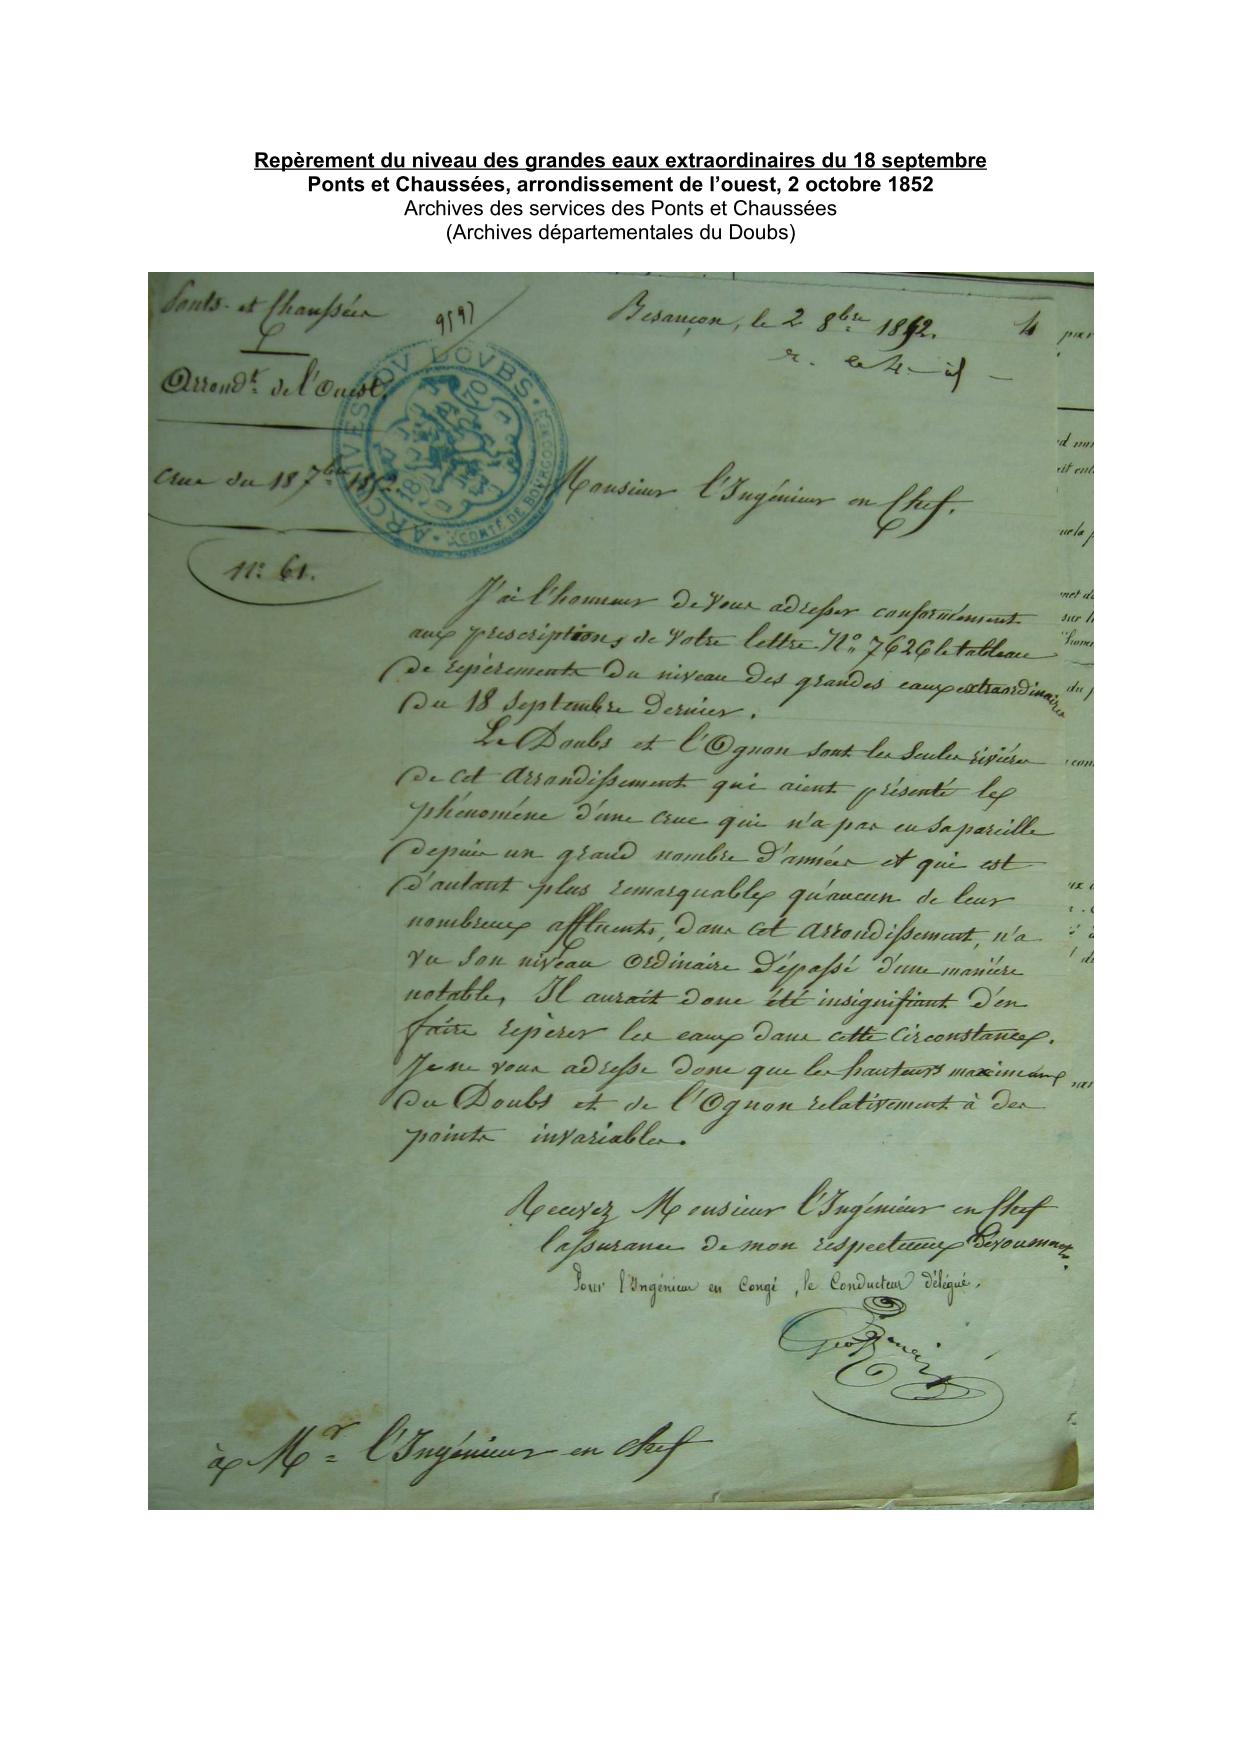 Repèrement du niveau des grandes eaux extraordinaires du 18 septembre
Ponts et Chaussées, arrondissement de l’ouest, 2 octobre 1852
Archives des services des Ponts et Chaussées
(Archives départementales du Doubs)
Ponts et Chaussées
9597
Besançon, le 2 8bre 1852.
Arrondt de l'Ouest.
ARCHIVES DU DOUBS
COMTÉ DE BOURGOGNE
1870
Crue du 18 7bre 1852.
Monsieur l'Ingénieur en Chef.
N° 61.
J'ai l'honneur de vous adresser conformément
aux prescriptions de votre lettre N° 7626 le tableau
de repèrements du niveau des grandes eaux extraordinaires
du 18 Septembre dernier.
Le Doubs et l'Ognon sont les seules rivières
de cet arrondissement qui aient présenté le
phénomène d'une crue qui n'a pas eu sa pareille
depuis un grand nombre d'années et qui est
d'autant plus remarquable qu'aucun de leur
nombreux affluents, dans cet arrondissement, n'a
vu son niveau ordinaire dépassé d'une manière
notable, Il aurait donc été insignifiant d'en
faire repérer les eaux dans cette circonstance.
Je ne vous adresse donc que les hauteurs maximum
du Doubs et de l'Ognon relativement à des
points invariables.
Recevez Monsieur l'Ingénieur en Chef
l'assurance de mon respectueux dévouement.
Pour l'Ingénieur en Congé, le Conducteur délégué.
à Mr l'Ingénieur en chef